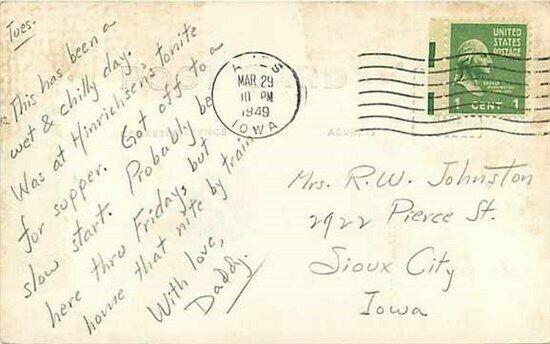 Tues.
This has been a
wet & chilly day.
Was at Hinrichsen's tonite
for supper. Got off to a
slow start. Probably be
here thru Friday, but
home that nite by train
With love,
Daddy.
MAR 29
10 PM
1949
IOWA
UNITED
STATES
POSTAGE
1 CENT 1
Mrs. R.W. Johnston
2922 Pierce St.
Sioux City
Iowa